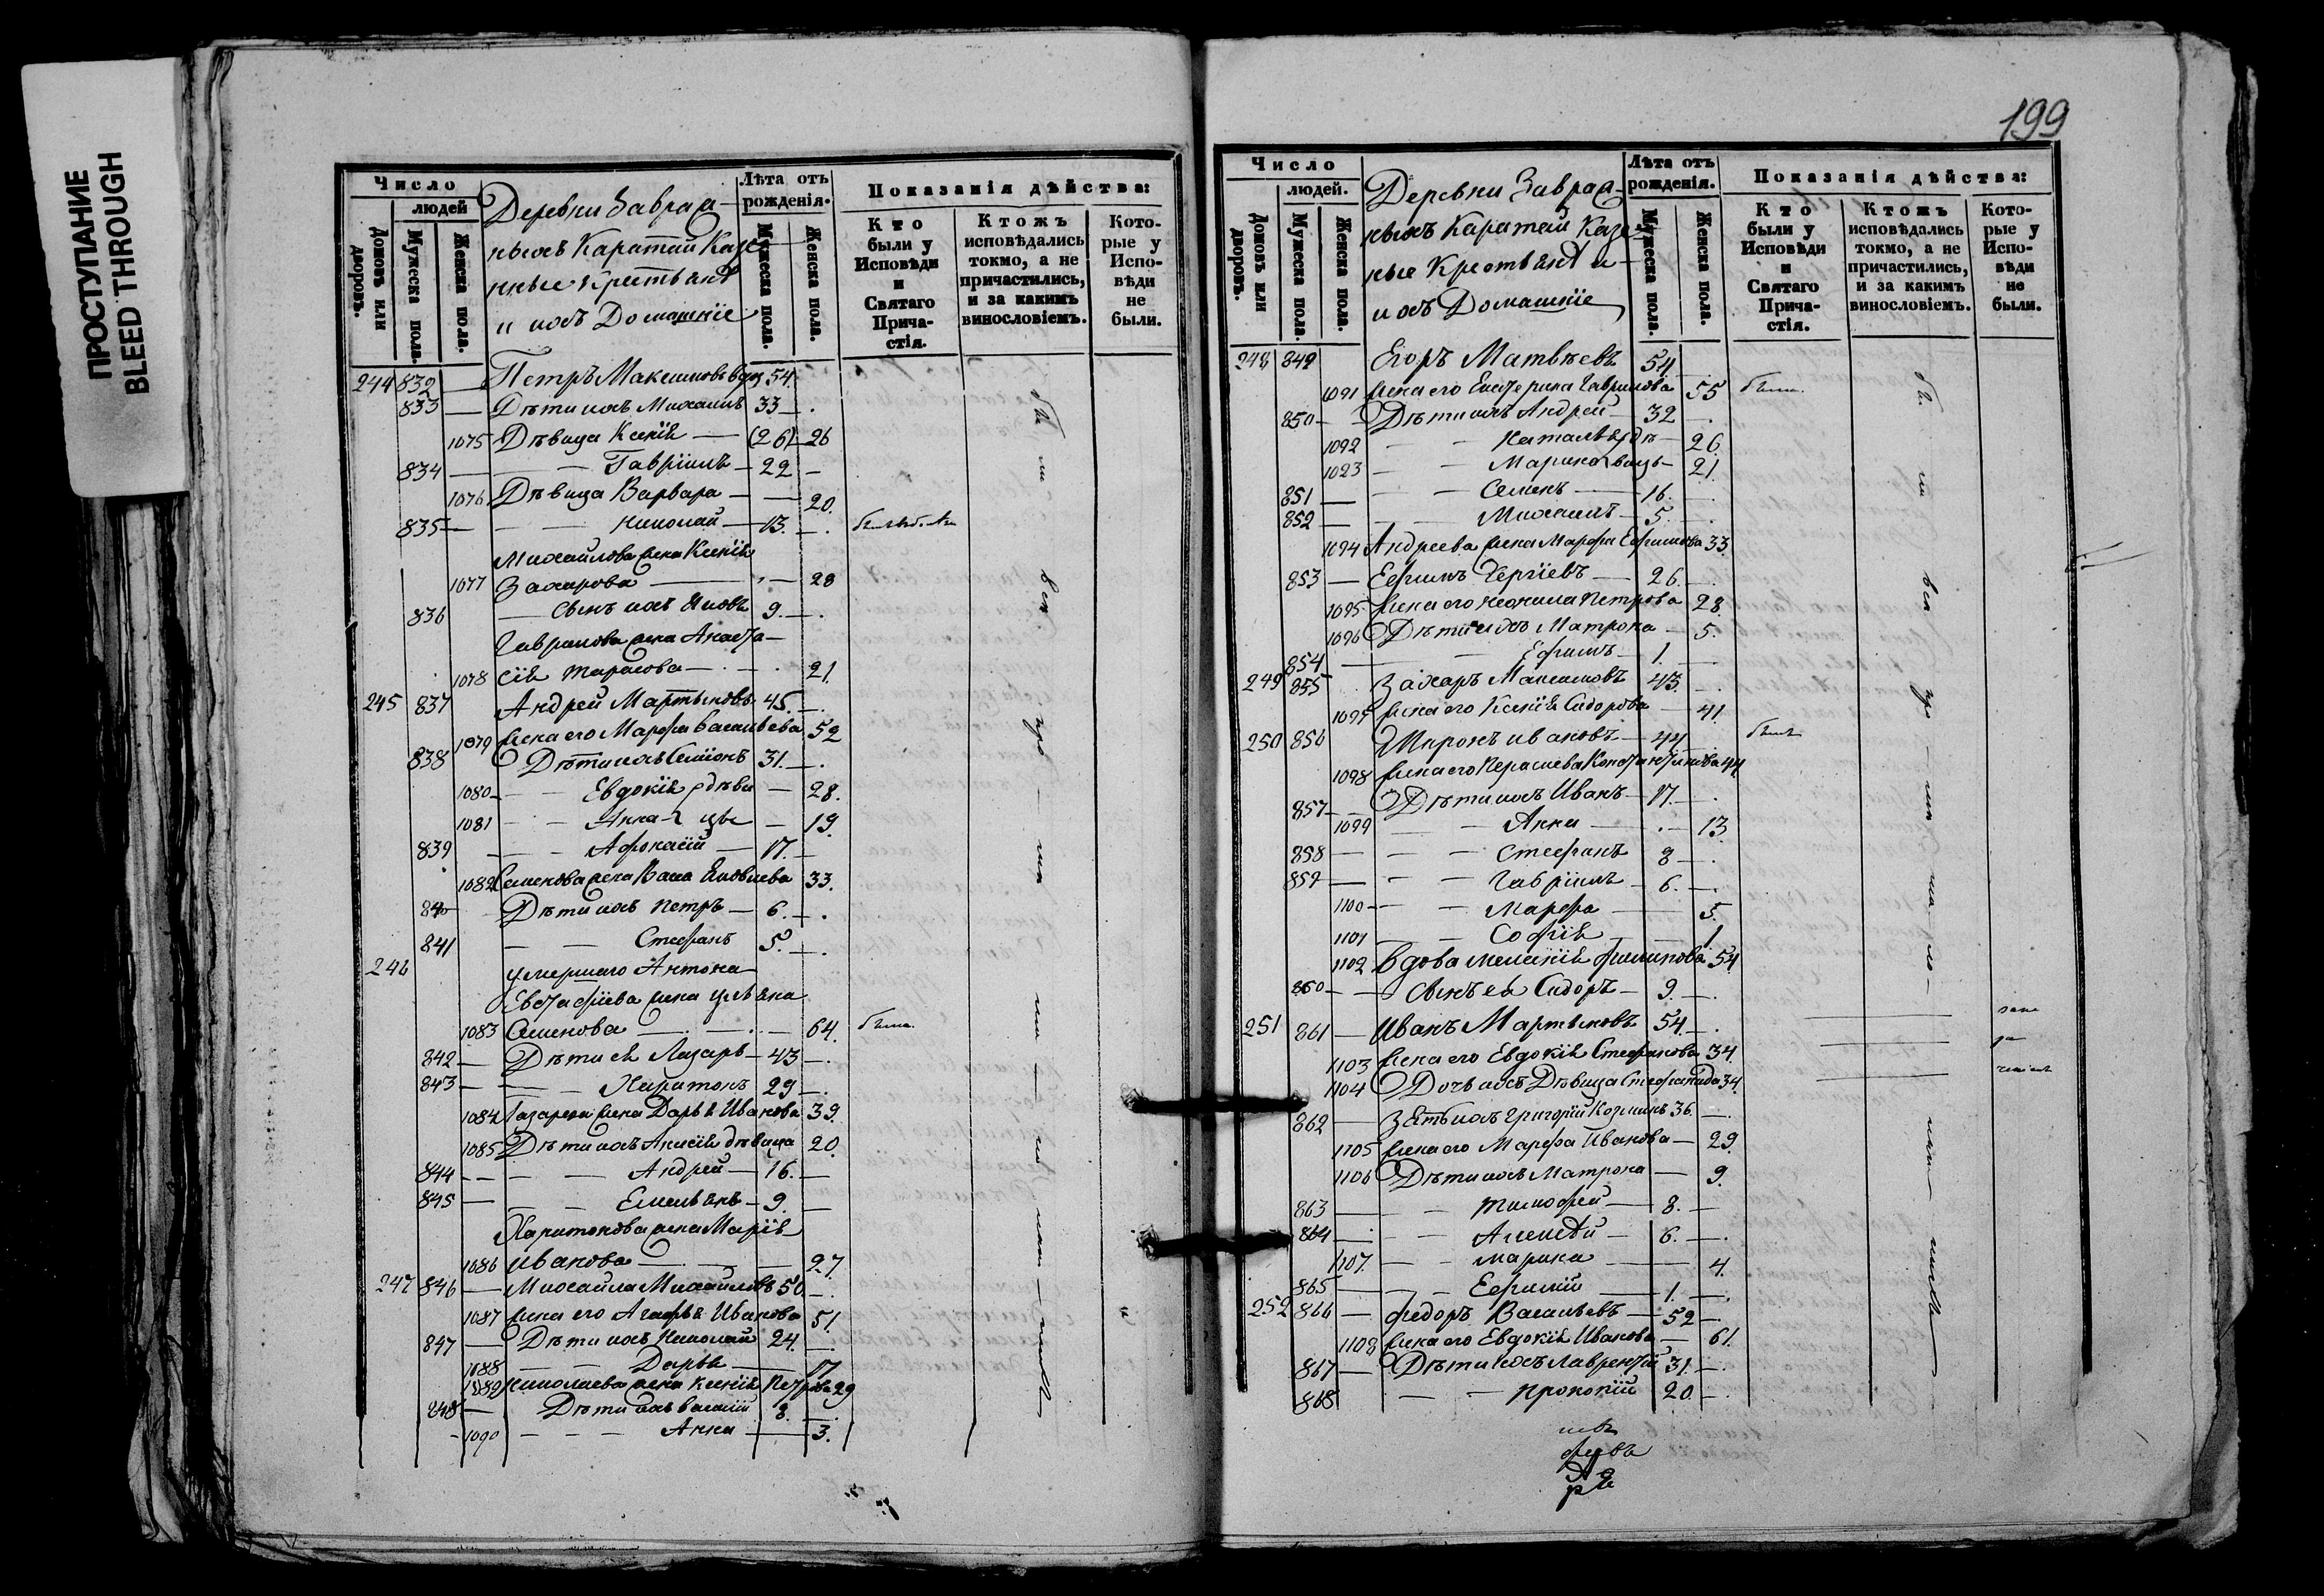 ПРОСТУПАНИЕ
BLEED THROUGH
Число
людей
Домовъ или дворовъ.
Мужеска пола.
Женска пола.
Деревни Заврая-
ныхъ Каратай Казе-
нные Крестьянѣ
и ихъ Домашніе
Лѣта отъ рожденія.
Мужеска пола.
Женска пола.
Показанія дѣйства:
Кто были у Исповѣди и Святаго Причастія.
Ктожъ исповѣдались токмо, а не причастились, и за какимъ винословіемъ.
Которые у Исповѣди не были.
244 832 — Петръ Максимовъ 54
833 — Дѣти ихъ Михаилъ 33 —
1075 Дѣвица Ксенія — (26) 26
834 — Гавріилъ — 22 —
1076 Дѣвица Варвара — — 20.
835 — Николай — 13. —
Михайлова жена Ксенія
1077 Захарова — — 28
836 — Сынъ ихъ Яковъ 9. —
Гаврилова жена Анаста-
1078 сія Тарасова — 21.
245 837 Андрей Мартыновъ 45. —
1079 Жена его Марфа Васильева 52
838 Дѣти ихъ Симіонъ 31. —
1080 — Евдокія дѣви — 28.
1081 — Анна цы — 19.
839 — Афонасій — 17. —
1082 Семенова жена Васса Яковлева 33.
840 Дѣти ихъ Петръ — 6. —
841 — Стефанъ 5. —
246 умершаго Антона
Евстафіева жена Ульяна
1083 Семенова — 64. была
842 — Дѣти ея Лазарь — 43 —
843 — Харитонъ 29 —
1084 Лазарева жена Дарья Иванова 39.
1085 Дѣти ихъ Анисія дѣвица 20.
844 — Андрей — 16. —
845 — Емельянъ — 9. —
Харитонова жена Марія
1086 Иванова — 27.
247 846 — Михайла Михайловъ 50. —
1087 Жена его Агафья Иванова 51.
847 — Дѣти ихъ Николай 24. —
1088 — Дарья — 17
1089 Николаева жена Ксенія Петрова 29
848 — Дѣти ихъ Василій 8. —
1090 — Анна — 3.
199
Число
людей.
Домовъ или дворовъ.
Мужеска пола.
Женска пола.
Деревни Заврая-
ныхъ Каратай Казе-
нные Крестьянѣ и
ихъ Домашніе
Лѣта отъ рожденія.
Мужеска пола.
Женска пола.
Показанія дѣйства:
Кто были у Исповѣди и Святаго Причастія.
Ктожъ исповѣдались токмо, а не причастились, и за какимъ винословіемъ.
Которые у Исповѣди не были.
248 849 Егоръ Матвѣевъ 54
1091 Жена его Екатерина Гаврилова 55 были
850 — Дѣти ихъ Андрей — 32 —
1092 — Наталья дѣ — 26.
1093 — Марина вицы — 21.
851 — Семенъ — 16. —
852 — Михаилъ — 5. —
1094 Андреева жена Марфа Ефимова 33.
853 — Ефимъ Сергіевъ — 26. —
1095 Жена его Неонила Петрова 28.
1096 Дѣти ихъ Матрона — 5.
854 — Ефимъ — 1. —
249 855 Захаръ Максимовъ 43. —
1097 Жена его Ксенія Сидорова — 41.
250 856 Миронъ Ивановъ — 44 — былъ
1098 Жена его Герасиева Константинова 44
857 — Дѣти ихъ Иванъ — 17. —
1099 — Анна — 13
858 — Стефанъ 8 —
859 — Гавріилъ — 6. —
1100 — Марфа — 5.
1101 — Софія — 1
1102 Вдова Меланія Филипова 54
860 — Сынъ ея Сидоръ — 9. —
251 861 — Иванъ Мартыновъ 54. —
1103 Жена его Евдокія Стефанова 34.
1104 Дочь ихъ Дѣвица Стефанида 34.
862 — Зять ихъ Григорій Козминъ 36. —
1105 Жена его Марфа Иванова — 29.
1106 Дѣти ихъ Матрона — 9.
863 — Тимофей — 8. —
864 — Алексѣй — 6. —
1107 — Марина — 4.
865 — Ефимій — 1. —
252 866 — Федоръ Васильевъ — 52 —
1108 Жена его Евдокія Иванова — 61.
867 — Дѣти ихъ Лаврентій 31. —
868 — Прокопій 20. —